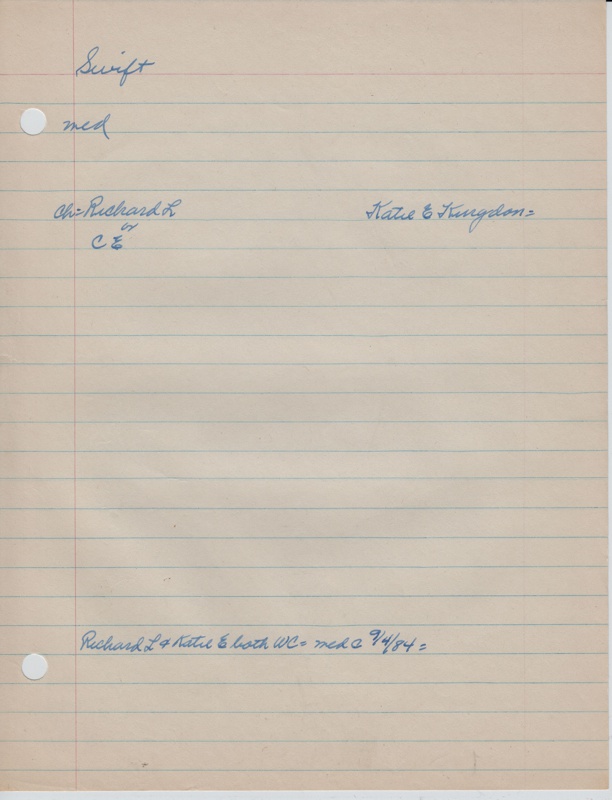 Swift
med
Ch= Richard L Katie E Kingdon=
or
C E
Richard L & Katie E both WC= med C 9/4/84=